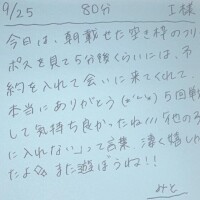 9/25 80分 I様
今日は、朝載せた空き枠のツイ
ポスを見て5分後くらいには、予
約を入れて会いに来てくれて、
本当にありがとう(*´`*) 5回戦
して気持ち良かったね!!! 「他の子
に入れない」って言葉、凄く嬉しか
たよ◇ また遊ぼうね!!
みと